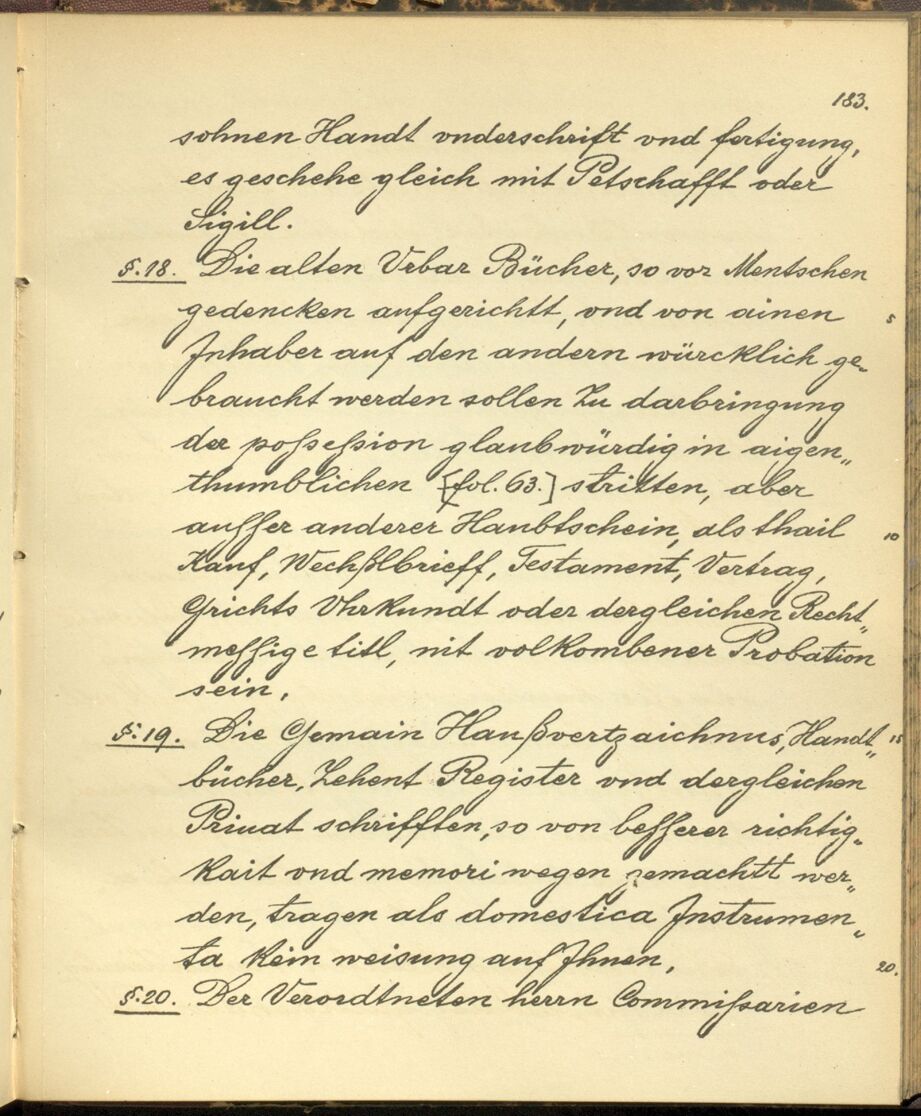 183.
sohnen Handt vnderschrifft vnd fertigung,
es geschehe gleich mit Petschafft oder
Sigill.
§.18. Die alten Vrbar Bücher, so vor Mentschen
gedencken aufgerichtt, vnd von ainen 5
Jnhaber auf den andern würcklich ge„
braucht werden sollen Zu darbringung
der poſseſsion glaubwürdig in aigen„
thumblichen [fol. 63.] stritten, aber
auſser anderer Haubtschein, als thail 10
Kauf, Wechßlbrieff, Testament, Vertrag,
Grichts Vhrkundt oder dergleichen Recht„
meſsige titl, nit volkombener Probation
sein.
§.19. Die Gemain Haußvertzaichnus, Handt„ 15
bücher, Zehent Register vnd dergleichen
Priuat schrifften, so von beſserer richtig„
kait vnd memori wegen gemachtt wer„
den, tragen als domestica Jnstrumen„
ta kein weisung auf Jhnen. 20.
§.20. Der Verordtneten herrn Commiſsarien